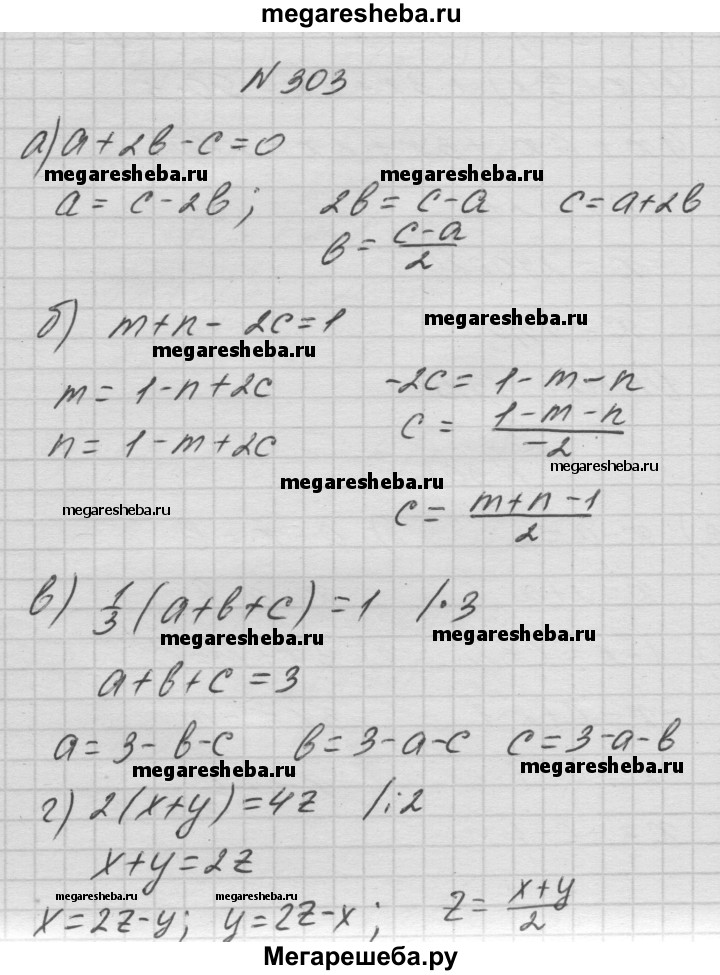 megaresheba.ru
№ 303
а) a + 2b - c = 0
megaresheba.ru megaresheba.ru
a = c - 2b; 2b = c - a c = a + 2b
b = (c - a)/2
б) m + n - 2c = 1 megaresheba.ru
megaresheba.ru
m = 1 - n + 2c -2c = 1 - m - n
n = 1 - m + 2c c = (1 - m - n)/-2
megaresheba.ru
megaresheba.ru
megaresheba.ru c = (m + n - 1)/2
в) 1/3 (a + b + c) = 1 /·3
megaresheba.ru megaresheba.ru
a + b + c = 3
a = 3 - b - c b = 3 - a - c c = 3 - a - b
megaresheba.ru megaresheba.ru
г) 2(x + y) = 4z /:2
x + y = 2z
megaresheba.ru megaresheba.ru megaresheba.ru
x = 2z - y; y = 2z - x; z = (x + y)/2
Мегарешеба.ру